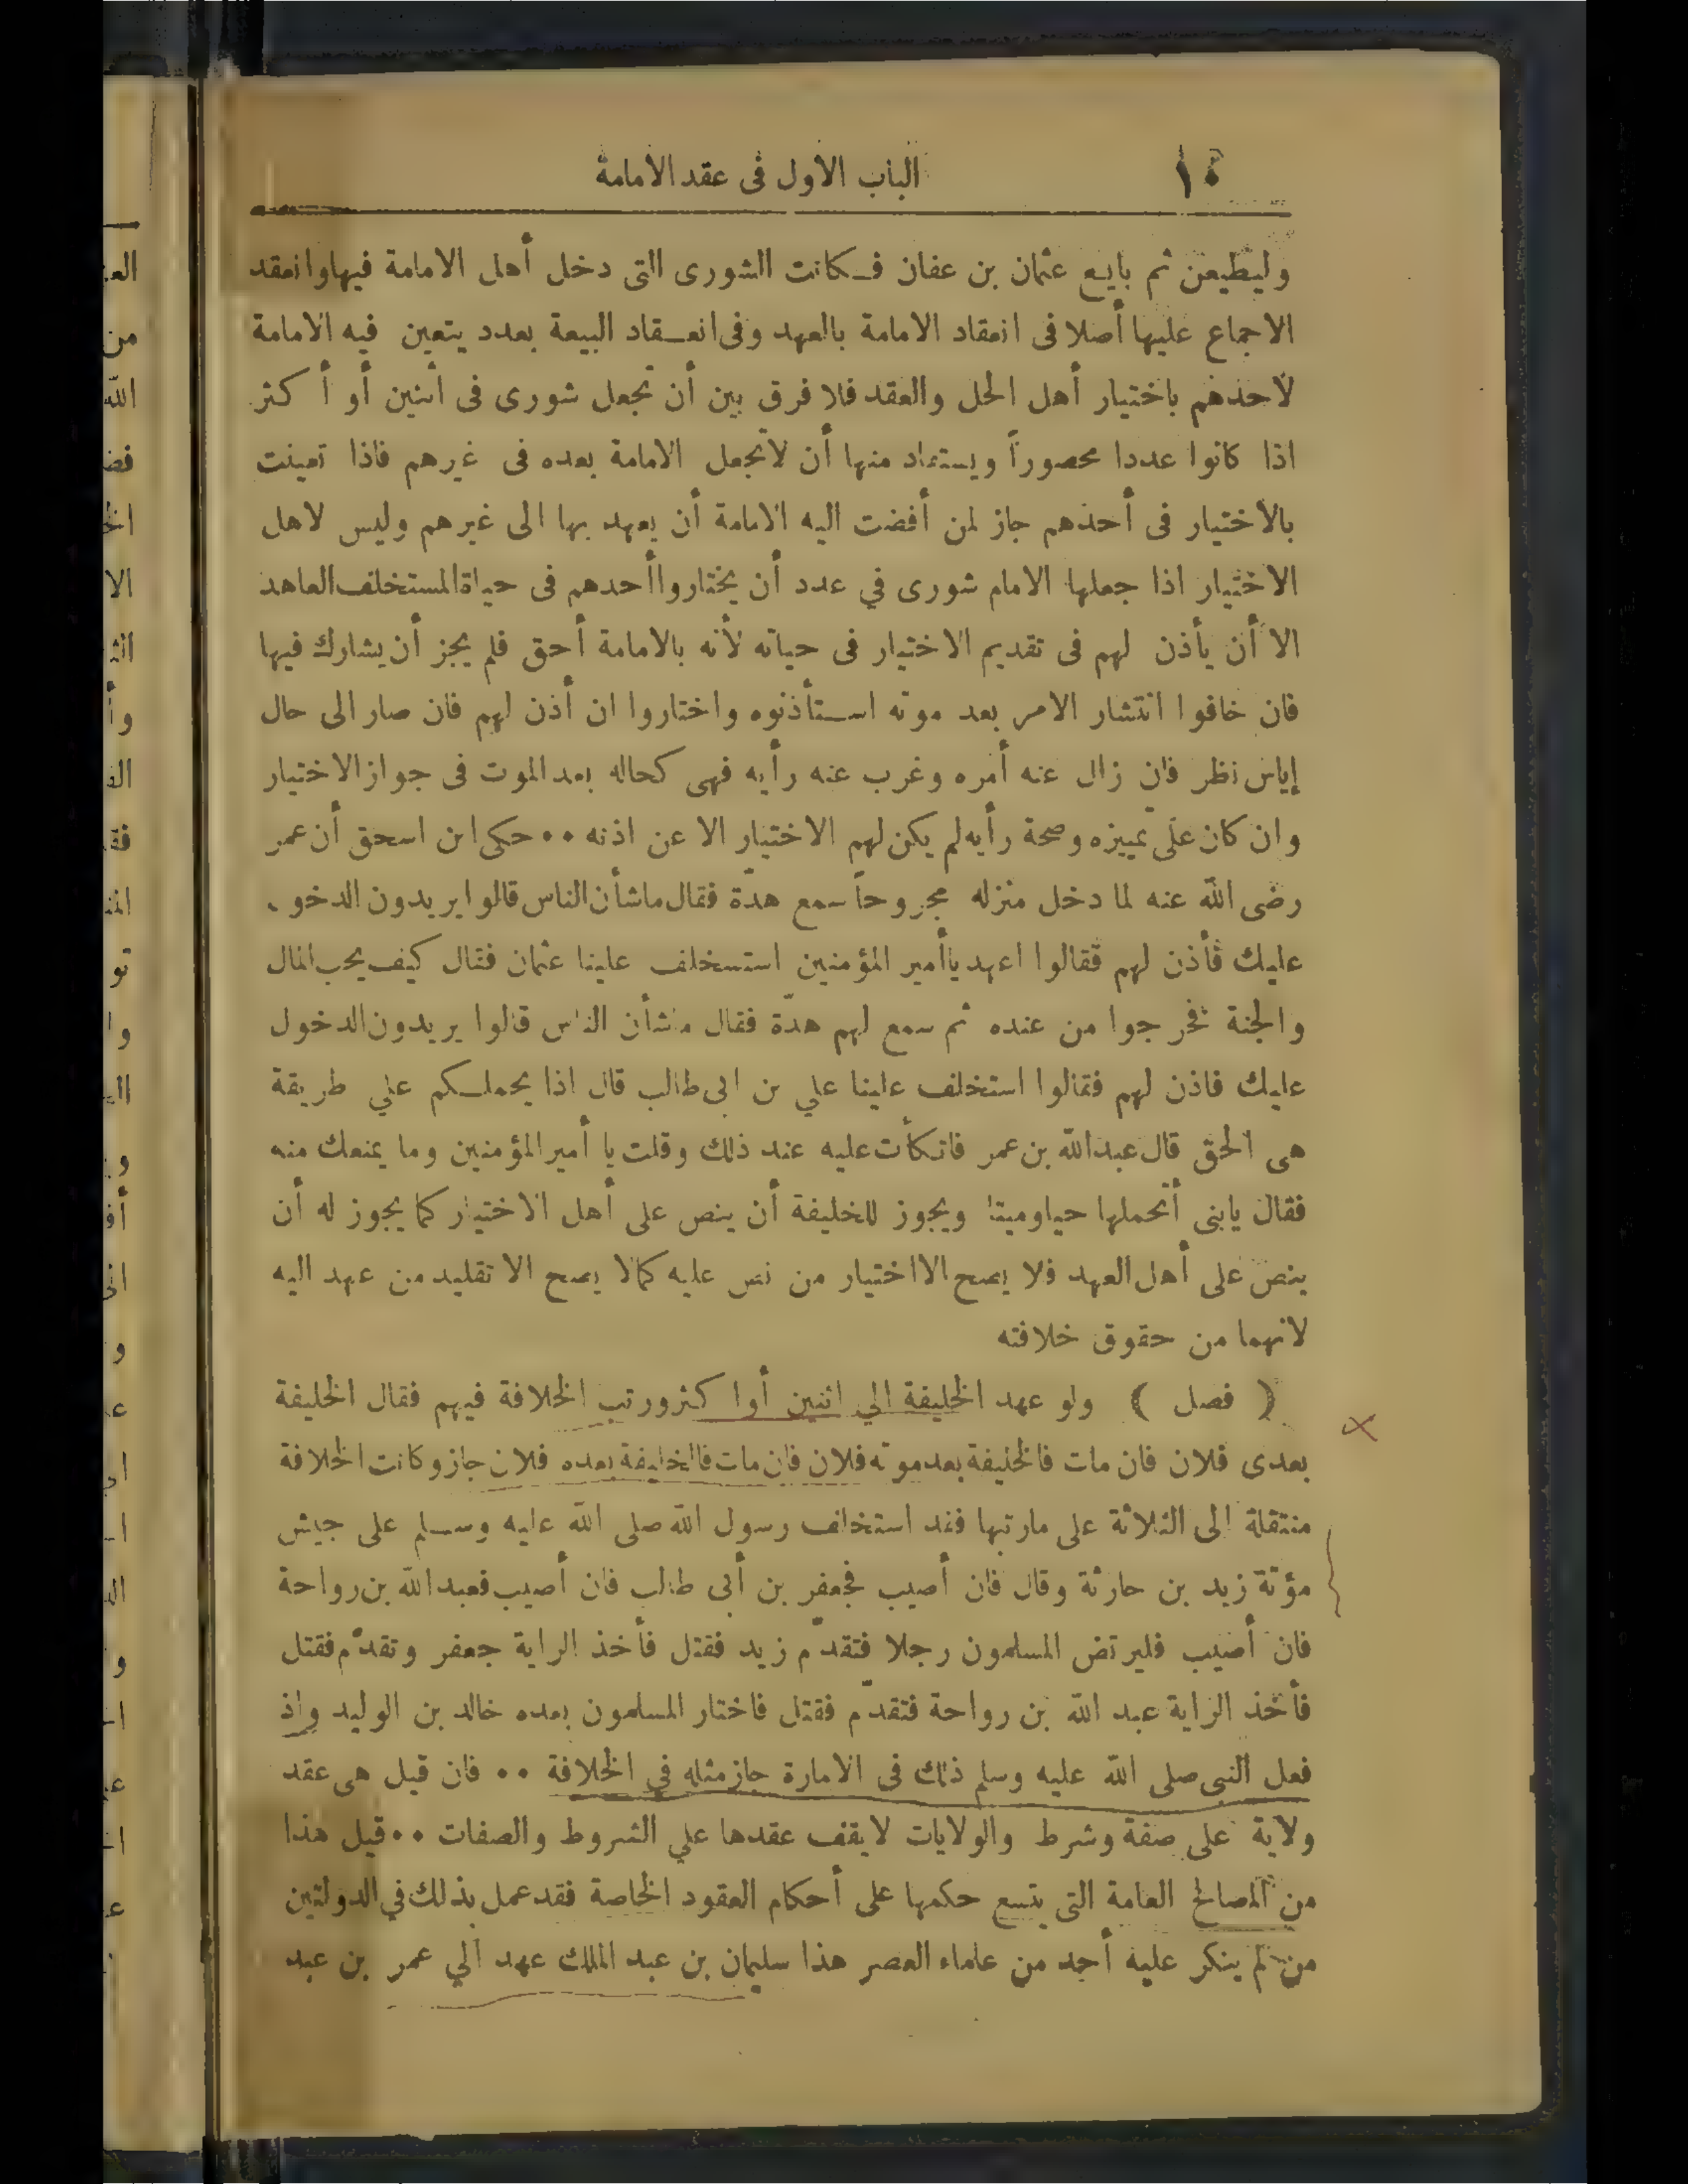 ١٠
الباب الاول فى عقد الامامة
وليطيعن ثم بايع عثمان بن عفان فكانت الشورى التى دخل أهل الامامة فيها وانعقد
الاجماع عليها أصلا فى انعقاد الامامة بالعهد وفى انعقاد البيعة بعدد يتعين فيه الامامة
لأحدهم باختيار أهل الحل والعقد فلا فرق بين أن تجعل شورى فى أثنين أو أكثر
اذا كانوا عددا محصوراً ويستفاد منها أن لاتجعل الامامة بعده فى غيرهم فاذا تعينت
بالاختيار فى أحدهم جاز لمن أفضت اليه الامامة أن يعهد بها الى غيرهم وليس لاهل
الاختيار اذا جعلها الامام شورى في عدد أن يختاروا أحدهم فى حياة المستخلف العاهد
الا أن يأذن لهم فى تقديم الاختيار فى حياته لأنه بالامامة أحق فلم يجز أن يشارك فيها
فان خافوا انتشار الامر بعد موته استأذنوه واختاروا ان أذن لهم فان صار الى حال
إياس نظر فان زال عنه أمره وغرب عنه رأيه فهى كحاله بعد الموت فى جواز الاختيار
وان كان على تمييزه وصحة رأيه لم يكن لهم الاختيار الا عن اذنه ٠٠ حكى ابن اسحق أن عمر
رضى الله عنه لما دخل منزله مجروحاً سمع هدّة فقال ماشأن الناس قالوا يريدون الدخو
عليك فأذن لهم فقالوا اعهد ياأمير المؤمنين استخلف علينا عثمان فقال كيف يحب المال
والجنة فخرجوا من عنده ثم سمع لهم هدّة فقال ماشأن الناس قالوا يريدون الدخول
عليك فاذن لهم فقالوا استخلف علينا علي بن ابى طالب قال اذا يحملكم علي طريقة
هى الحق قال عبد الله بن عمر فاتكأت عليه عند ذلك وقلت يا أمير المؤمنين وما يمنعك منه
فقال يابنى أتحملها حيا وميتا ويجوز للخليفة أن ينص على أهل الاختيار كما يجوز له أن
ينص على أهل العهد فلا يصح الا اختيار من نص عليه كمالا يصح الا تقليد من عهد اليه
لانهما من حقوق خلافته
( فصل ) ولو عهد الخليفة الي اثنين أو اكثر ورتب الخلافة فيهم فقال الخليفة
بعدى فلان فان مات فالخليفة بعد موته فلان فان مات فالخليفة بعده فلان جاز وكانت الخلافة
منتقلة الى الثلاثة على مارتبها فقد استخلف رسول الله صلى الله عليه وسلم على جيش
مؤتة زيد بن حارثة وقال فان أصيب فجعفر بن أبى طالب فان أصيب فعبد الله بن رواحة
فان أصيب فليرتض المسلمون رجلا فتقدّم زيد فقتل فأخذ الراية جعفر وتقدّم فقتل
فأخذ الراية عبد الله بن رواحة فتقدّم فقتل فاختار المسلمون بعده خالد بن الوليد واذ
فعل النبى صلى الله عليه وسلم ذلك فى الامارة جاز مثله في الخلافة ٠٠ فان قيل هى عقد
ولاية على صفة وشرط والولايات لا يقف عقدها علي الشروط والصفات ٠٠ قيل هذا
من المصالح العامة التى يتسع حكمها على أحكام العقود الخاصة فقد عمل بذلك في الدولتين
من لم ينكر عليه أحد من علماء العصر هذا سليمان بن عبد الملك عهد الي عمر بن عبد